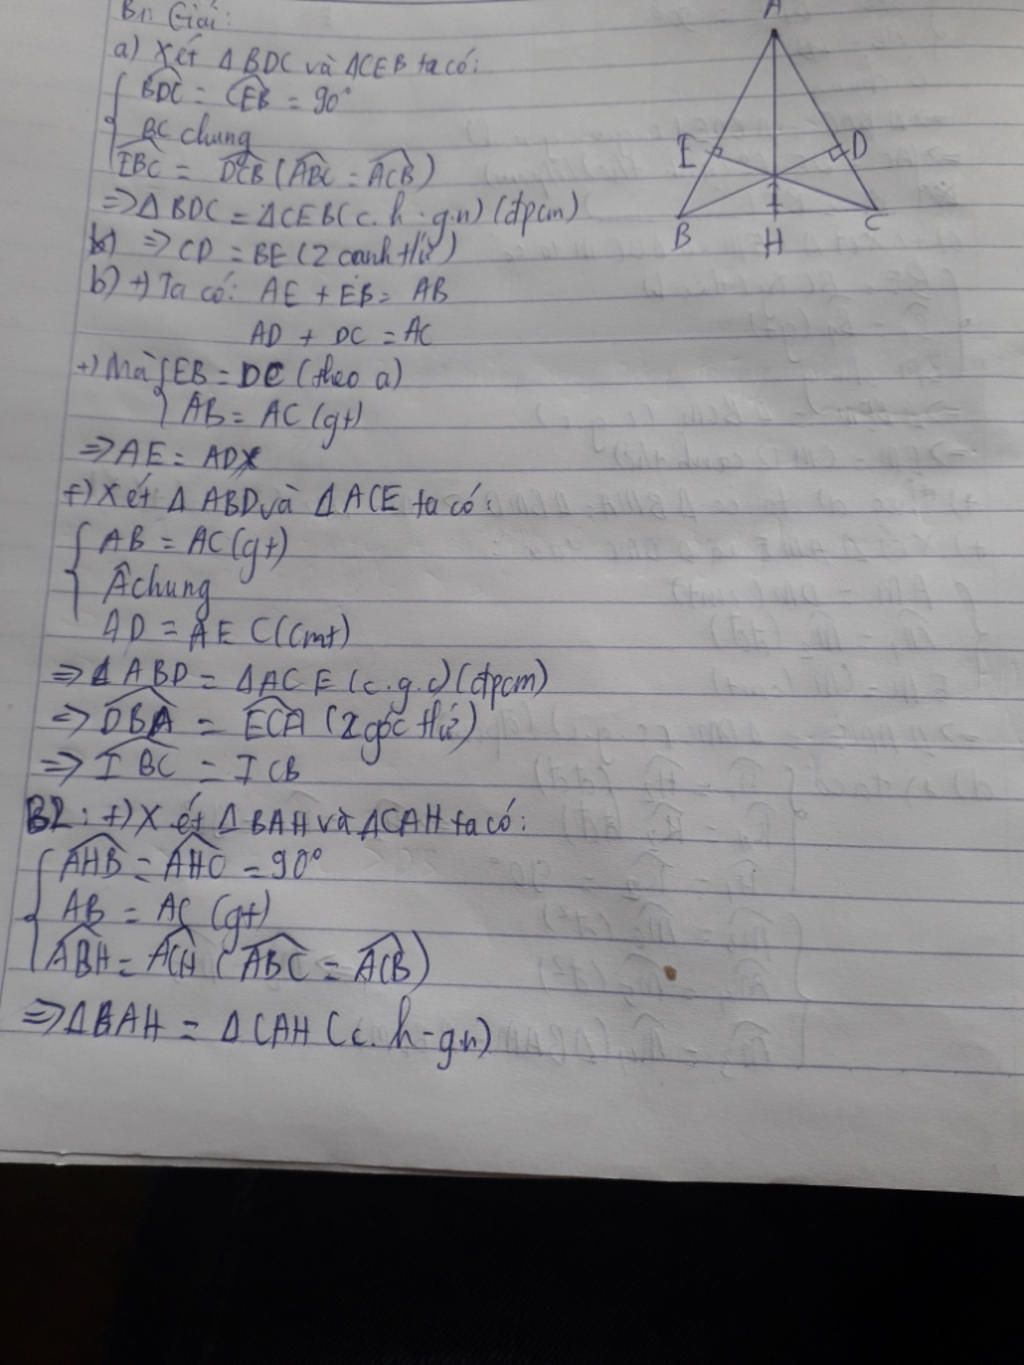 B1: Giải:
a) Xét Δ BDC và ΔCEB ta có:
BDC = CEB = 90°
BC chung
EBC = DCB (ABC = ACB)
⇒ Δ BDC = ΔCEB (c.h - g.n) (đpcm)
⇒ CD = BE (2 cạnh t/ứ)
b) +) Ta có: AE + EB = AB
AD + DC = AC
+) Mà EB = DC (theo a)
AB = AC (gt)
⇒ AE = AD
+) Xét Δ ABD và ΔACE ta có:
AB = AC (gt)
Â chung
AD = AE (cmt)
⇒ Δ ABD = ΔACE (c.g.c) (đpcm)
⇒ DBA = ECA (2 góc t/ứ)
⇒ IBC = ICB
B2: +) Xét Δ BAH và ΔCAH ta có:
AHB = AHC = 90°
AB = AC (gt)
ABH = ACH (ABC = ACB)
⇒ ΔBAH = ΔCAH (c.h - g.n)
A
E
D
I
B
H
C